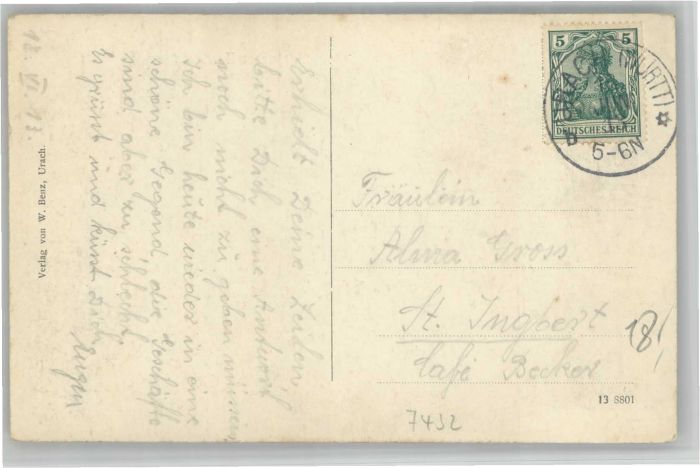 18. VI. 13.
Erhielt Deine Zeilen
bitte Dich eine Antwort
noch nicht zu geben müssen
Ich bin heute wieder in eine
schöne Gegend die Geschäfte
sind aber zu schlecht
Es grüsst und küsst Dich
Eugen
Verlag von W. Benz, Urach.
5 5
DEUTSCHES REICH
URACH (WÜRTT)
5-6N
Fräulein
Alma Gross
St. Ingbert
Café Becker
18/
13 8801
7432